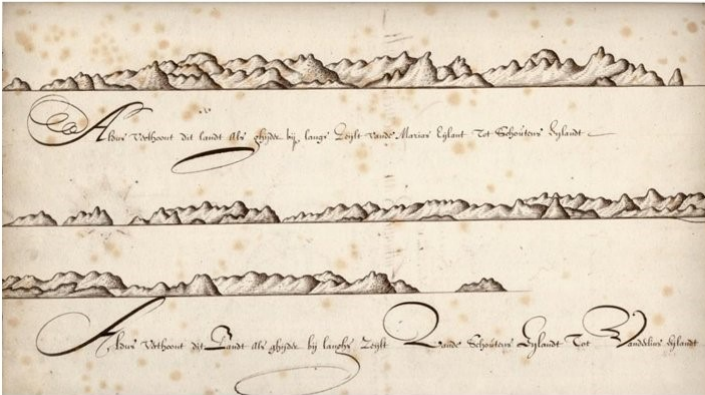 Aldus Verthoont dit landt Als ghijder bij langs Zeijlt vande Marias Eijlant Tot Schoutens Eijlandt
Aldus Verthoont dit Landt Als ghijder bij langhs Zeijlt Vande Schoutens Eijlandt Tot Vanderlins eijlandt